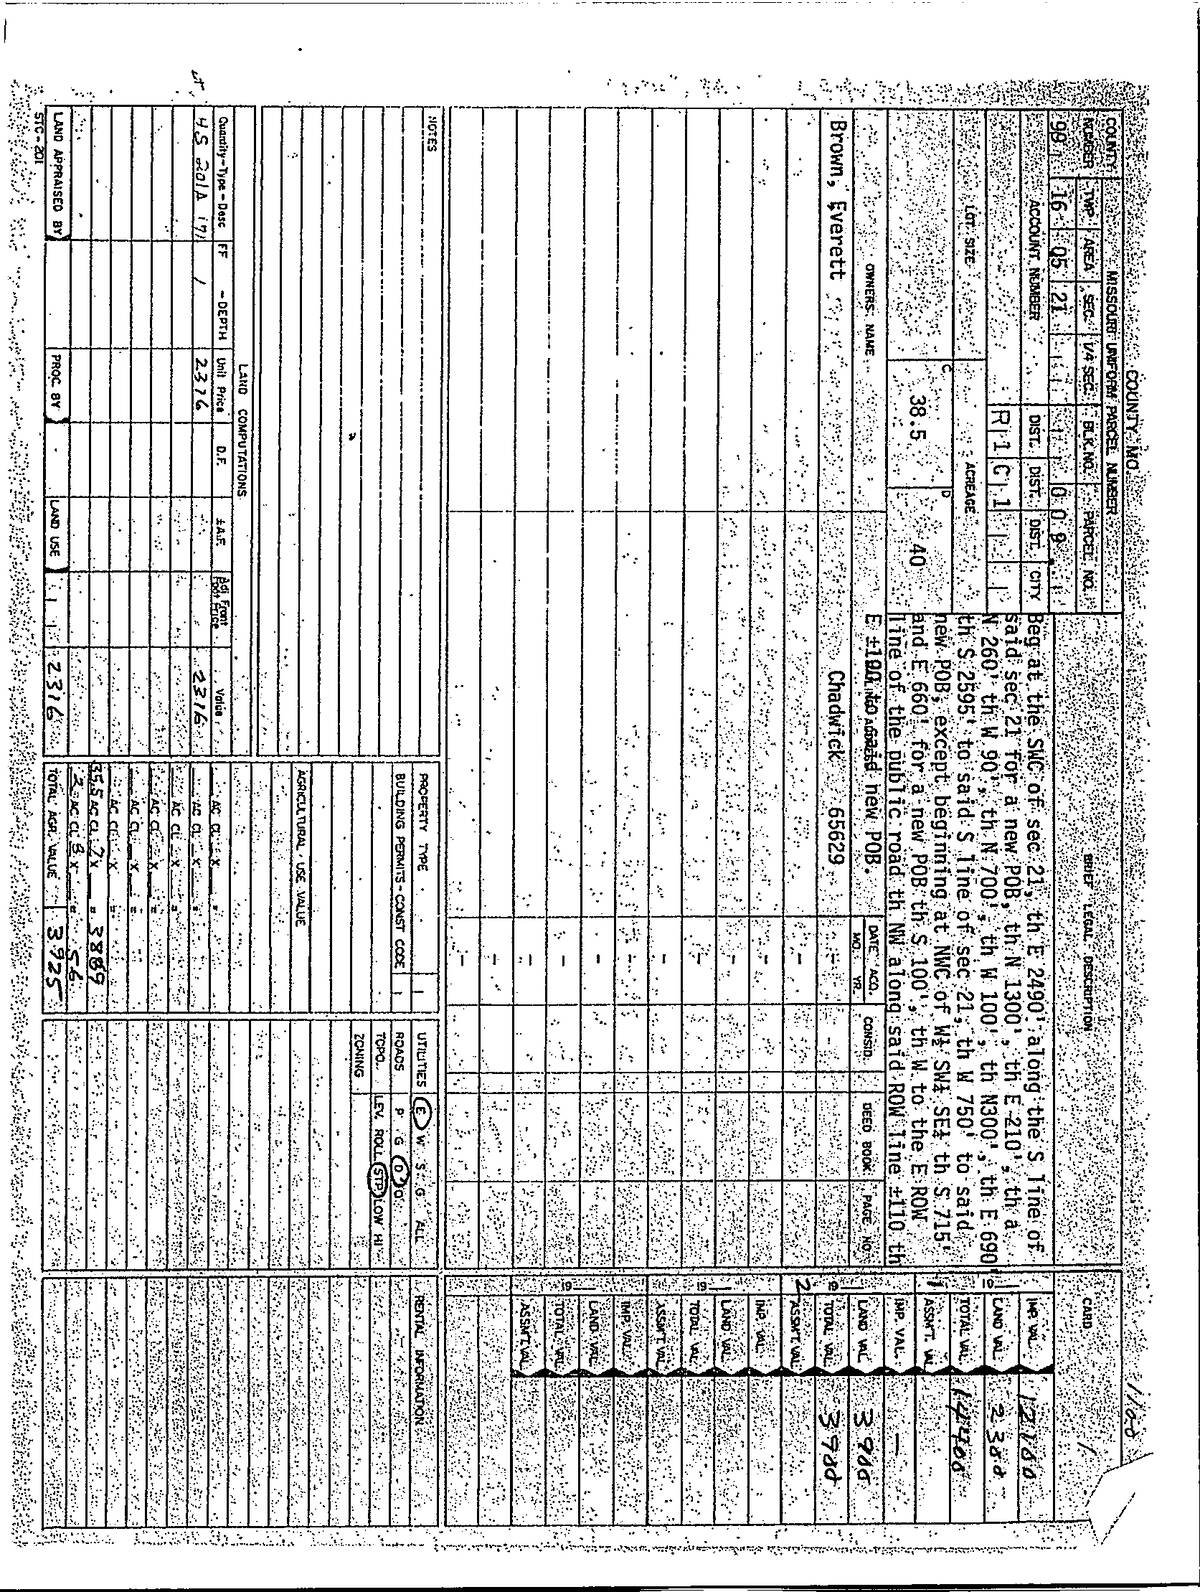 COUNTY MO.
1/00
MISSOURI UNIFORM PARCEL NUMBER
BRIEF LEGAL DESCRIPTION
CARD 1
COUNTY NUMBER TWP. AREA SEC. 1/4 SEC. BLK.NO. PARCEL NO.
99 16 05 21
ACCOUNT NUMBER DIST. DIST. DIST. CITY
R 1 C 1
LOT SIZE ACREAGE
C 38.5 D 40
Beg at the SWC of sec 21, th E 2490' along the S line of
said sec 21 for a new POB, th N 1300', th E 210', th a
N 260' th W 90', th N 700', th W 100', th N300', th E 690'
th S 2595' to said S line of sec 21, th W 750' to said
new POB, except beginning at NWC of W½ SW¼ SE¼ th S 715'
and E 660' for a new POB th S 100', th W to the E ROW
line of the public road th NW along said ROW line ±110 th
E ±190 to said new POB.
OWNERS NAME MAILING ADDRESS DATE ACQ. MO. YR. CONSID. DEED BOOK PAGE NO.
Brown, Everett Chadwick 65629
19
IMP. VAL. 12100
LAND VAL. 2300
TOTAL VAL. 14400
1 ASSM'T. VAL.
IMP. VAL. —
19 LAND VAL. 3900
TOTAL VAL. 3900
2 ASSM'T. VAL.
IMP. VAL.
19 LAND VAL.
TOTAL VAL.
ASSM'T. VAL.
IMP. VAL.
19 LAND VAL.
TOTAL VAL.
ASSM'T. VAL.
NOTES
PROPERTY TYPE
BUILDING PERMITS - CONST CODE
UTILITIES E W S G ALL
ROADS P G D O
TOPO. LEV ROLL STP LOW HI
ZONING
RENTAL INFORMATION
AGRICULTURAL USE VALUE
LAND COMPUTATIONS
Quantity-Type-Desc FF - DEPTH Unit Price D.F. ± A.F. Adj. Front Foot Price Value
HS 201A 171 / 2316 2316
AC CL X =
AC CL X =
AC CL X =
AC CL X =
AC CL X =
AC CL X =
35.5 AC CL 7 X = 3869
3 AC CL 8 X = 56
LAND APPRAISED BY PROC. BY LAND USE 2316
TOTAL AGR. VALUE 3925
STC-201